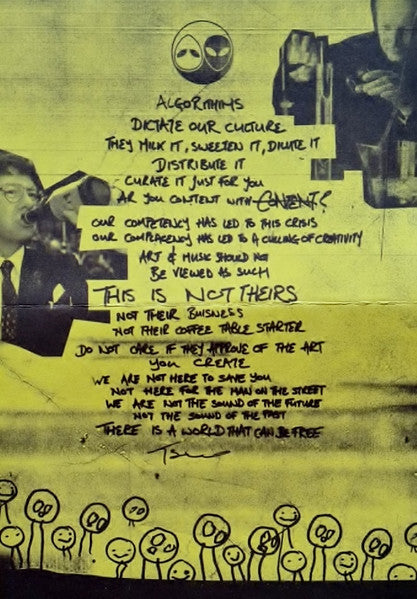 ALGORITHIMS
DICTATE OUR CULTURE
THEY MILK IT, SWEETEN IT, DILUTE IT
DISTRIBUTE IT
CURATE IT JUST FOR YOU
AR YOU CONTENT WITH CONTENT?
OUR COMPETENCY HAS LED TO THIS CRISIS
OUR COMPLACENCY HAS LED TO A CULLING OF CREATIVITY
ART & MUSIC SHOULD NO
BE VIEWED AS SUCH
THIS IS NOT THEIRS
NOT THEIR BUISNESS
NOT THEIR COFFEE TABLE STARTER
DO NOT CARE IF THEY APPROVE OF THE ART
YOU CREATE
WE ARE NOT HERE TO SAVE YOU
NOT HERE FOR THE MAN ON THE STREET
WE ARE NOT THE SOUND OF THE FUTURE
NOT THE SOUND OF THE PAST
THERE IS A WORLD THAT CAN BE FREE